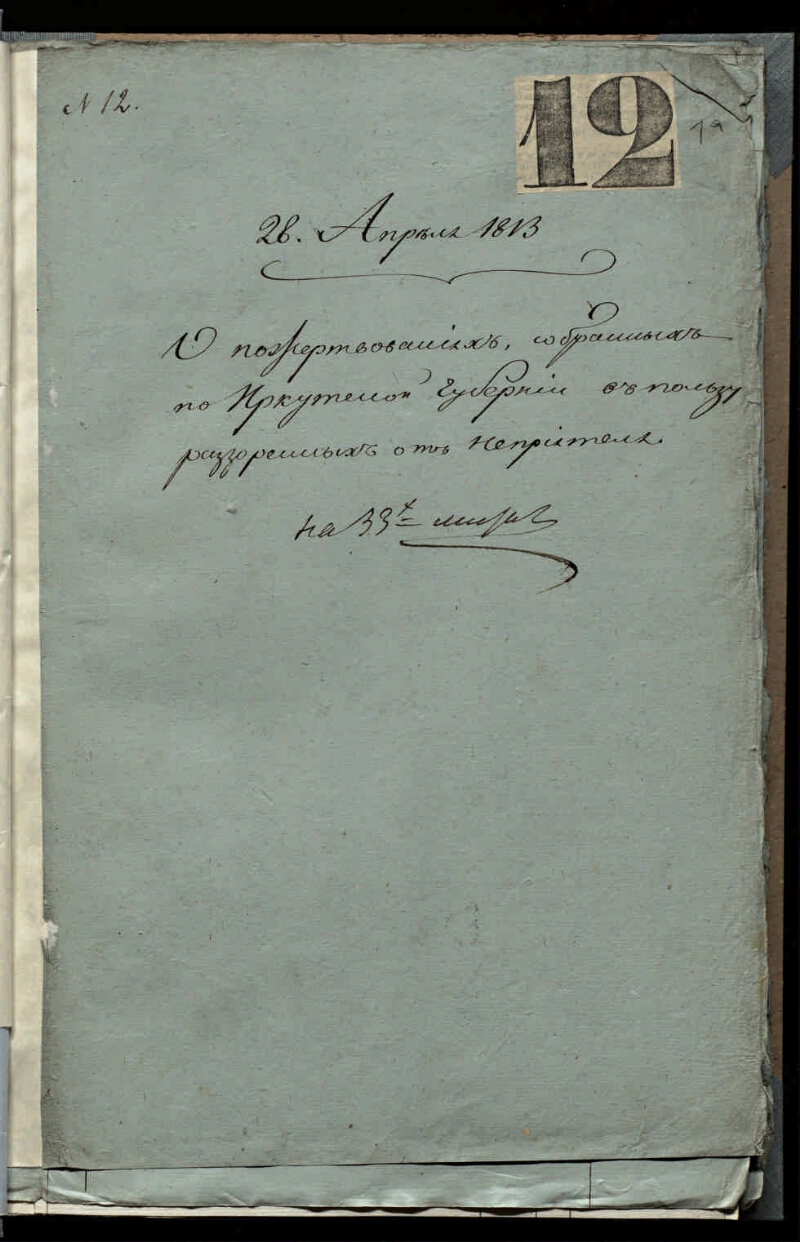 N 12.
12
1а
28. Апрѣля 1813
О пожертвованіяхъ, собранныхъ
по Иркутской Губерніи въ пользу
раззоренныхъ отъ непріятеля.
на 33х